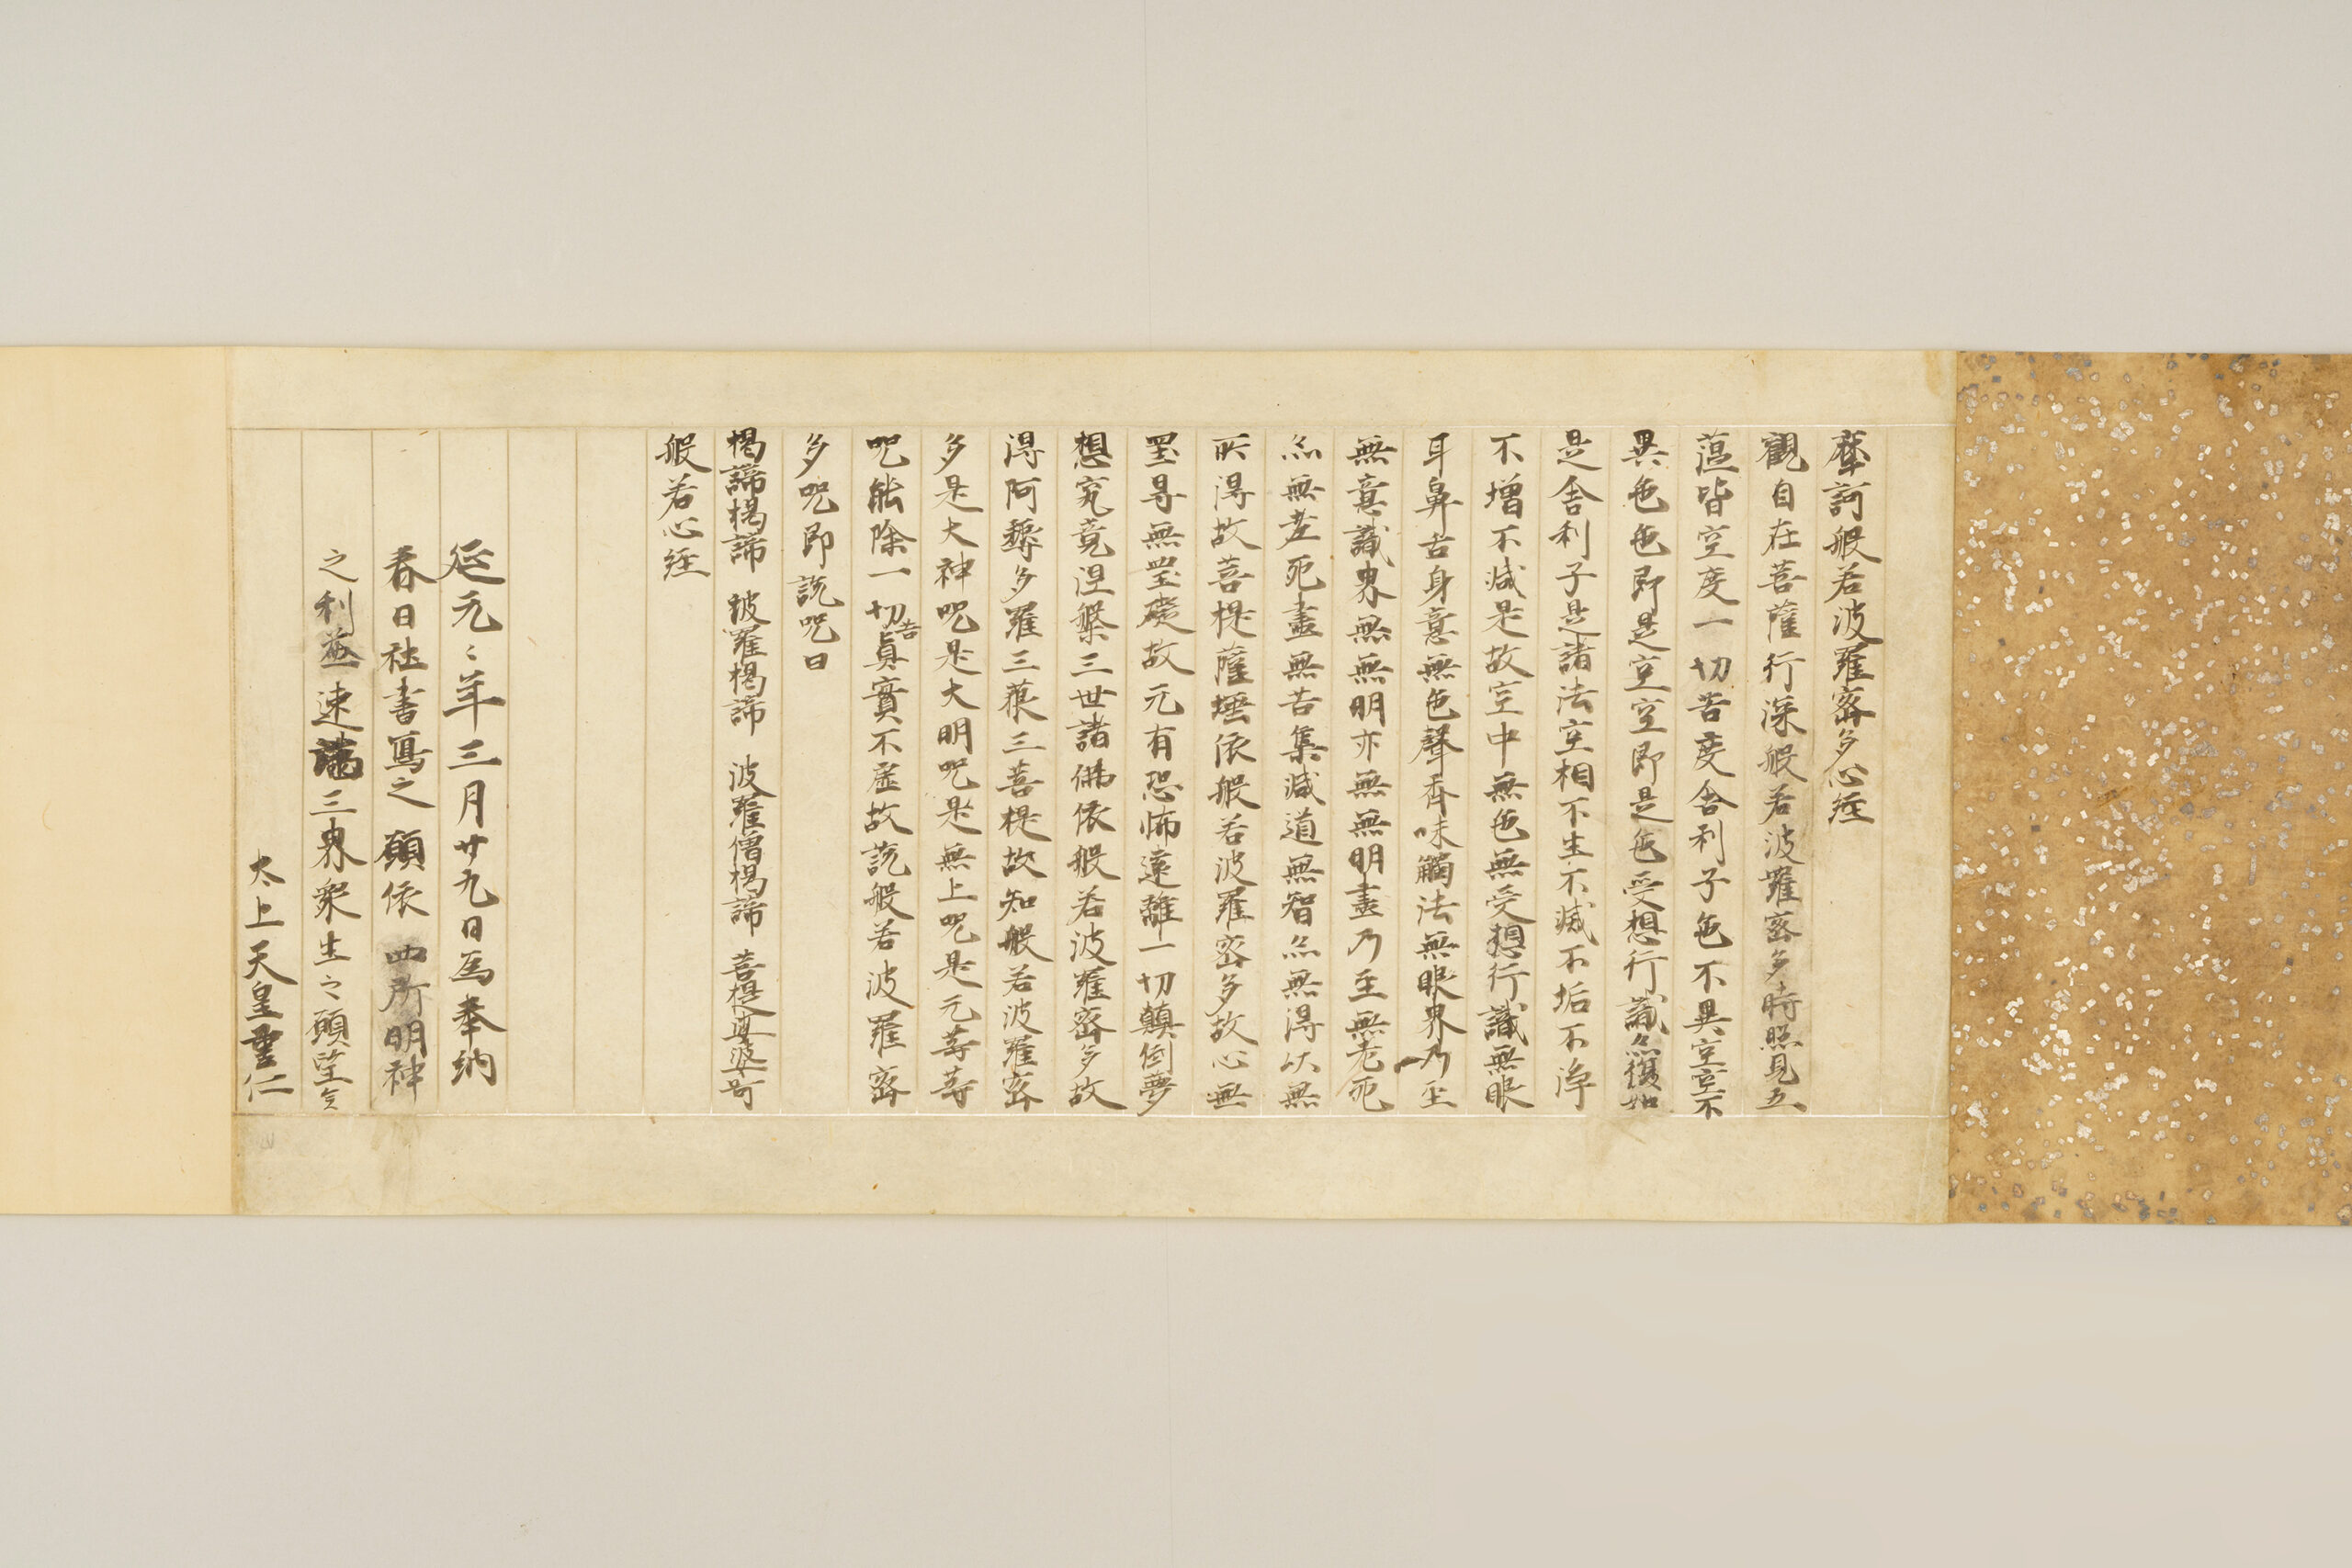 摩訶般若波羅蜜多心経
觀自在菩薩行深般若波羅蜜多時照見五
薀皆空度一切苦度舎利子色不異空空不
異色色即是空空即是色受想行識亦復如
是舎利子是諸法空相不生不滅不垢不浄
不増不減是故空中無色無受想行識無眼
耳鼻舌身意無色聲香味觸法無眼界乃至
無意識界無無明亦無無明盡乃至無老死
亦無老死盡無苦集滅道無智亦無得以無
所得故菩提薩埵依般若波羅蜜多故心無
罣㝵無罣礙故无有恐怖遠離一切顛倒夢
想究竟涅槃三世諸佛依般若波羅蜜多故
得阿耨多羅三藐三菩提故知般若波羅蜜
多是大神呪是大明呪是無上呪是无等等
呪能除一切苦真實不虚故説般若波羅蜜
多呪即説呪曰
揭諦揭諦 波羅揭諦 波羅僧揭諦 菩提莎婆訶
般若心経
延元々年三月廿九日為奉納
春日社書寫之 願依 四所明神
之利益速満三界衆生之願望矣
太上天皇量仁